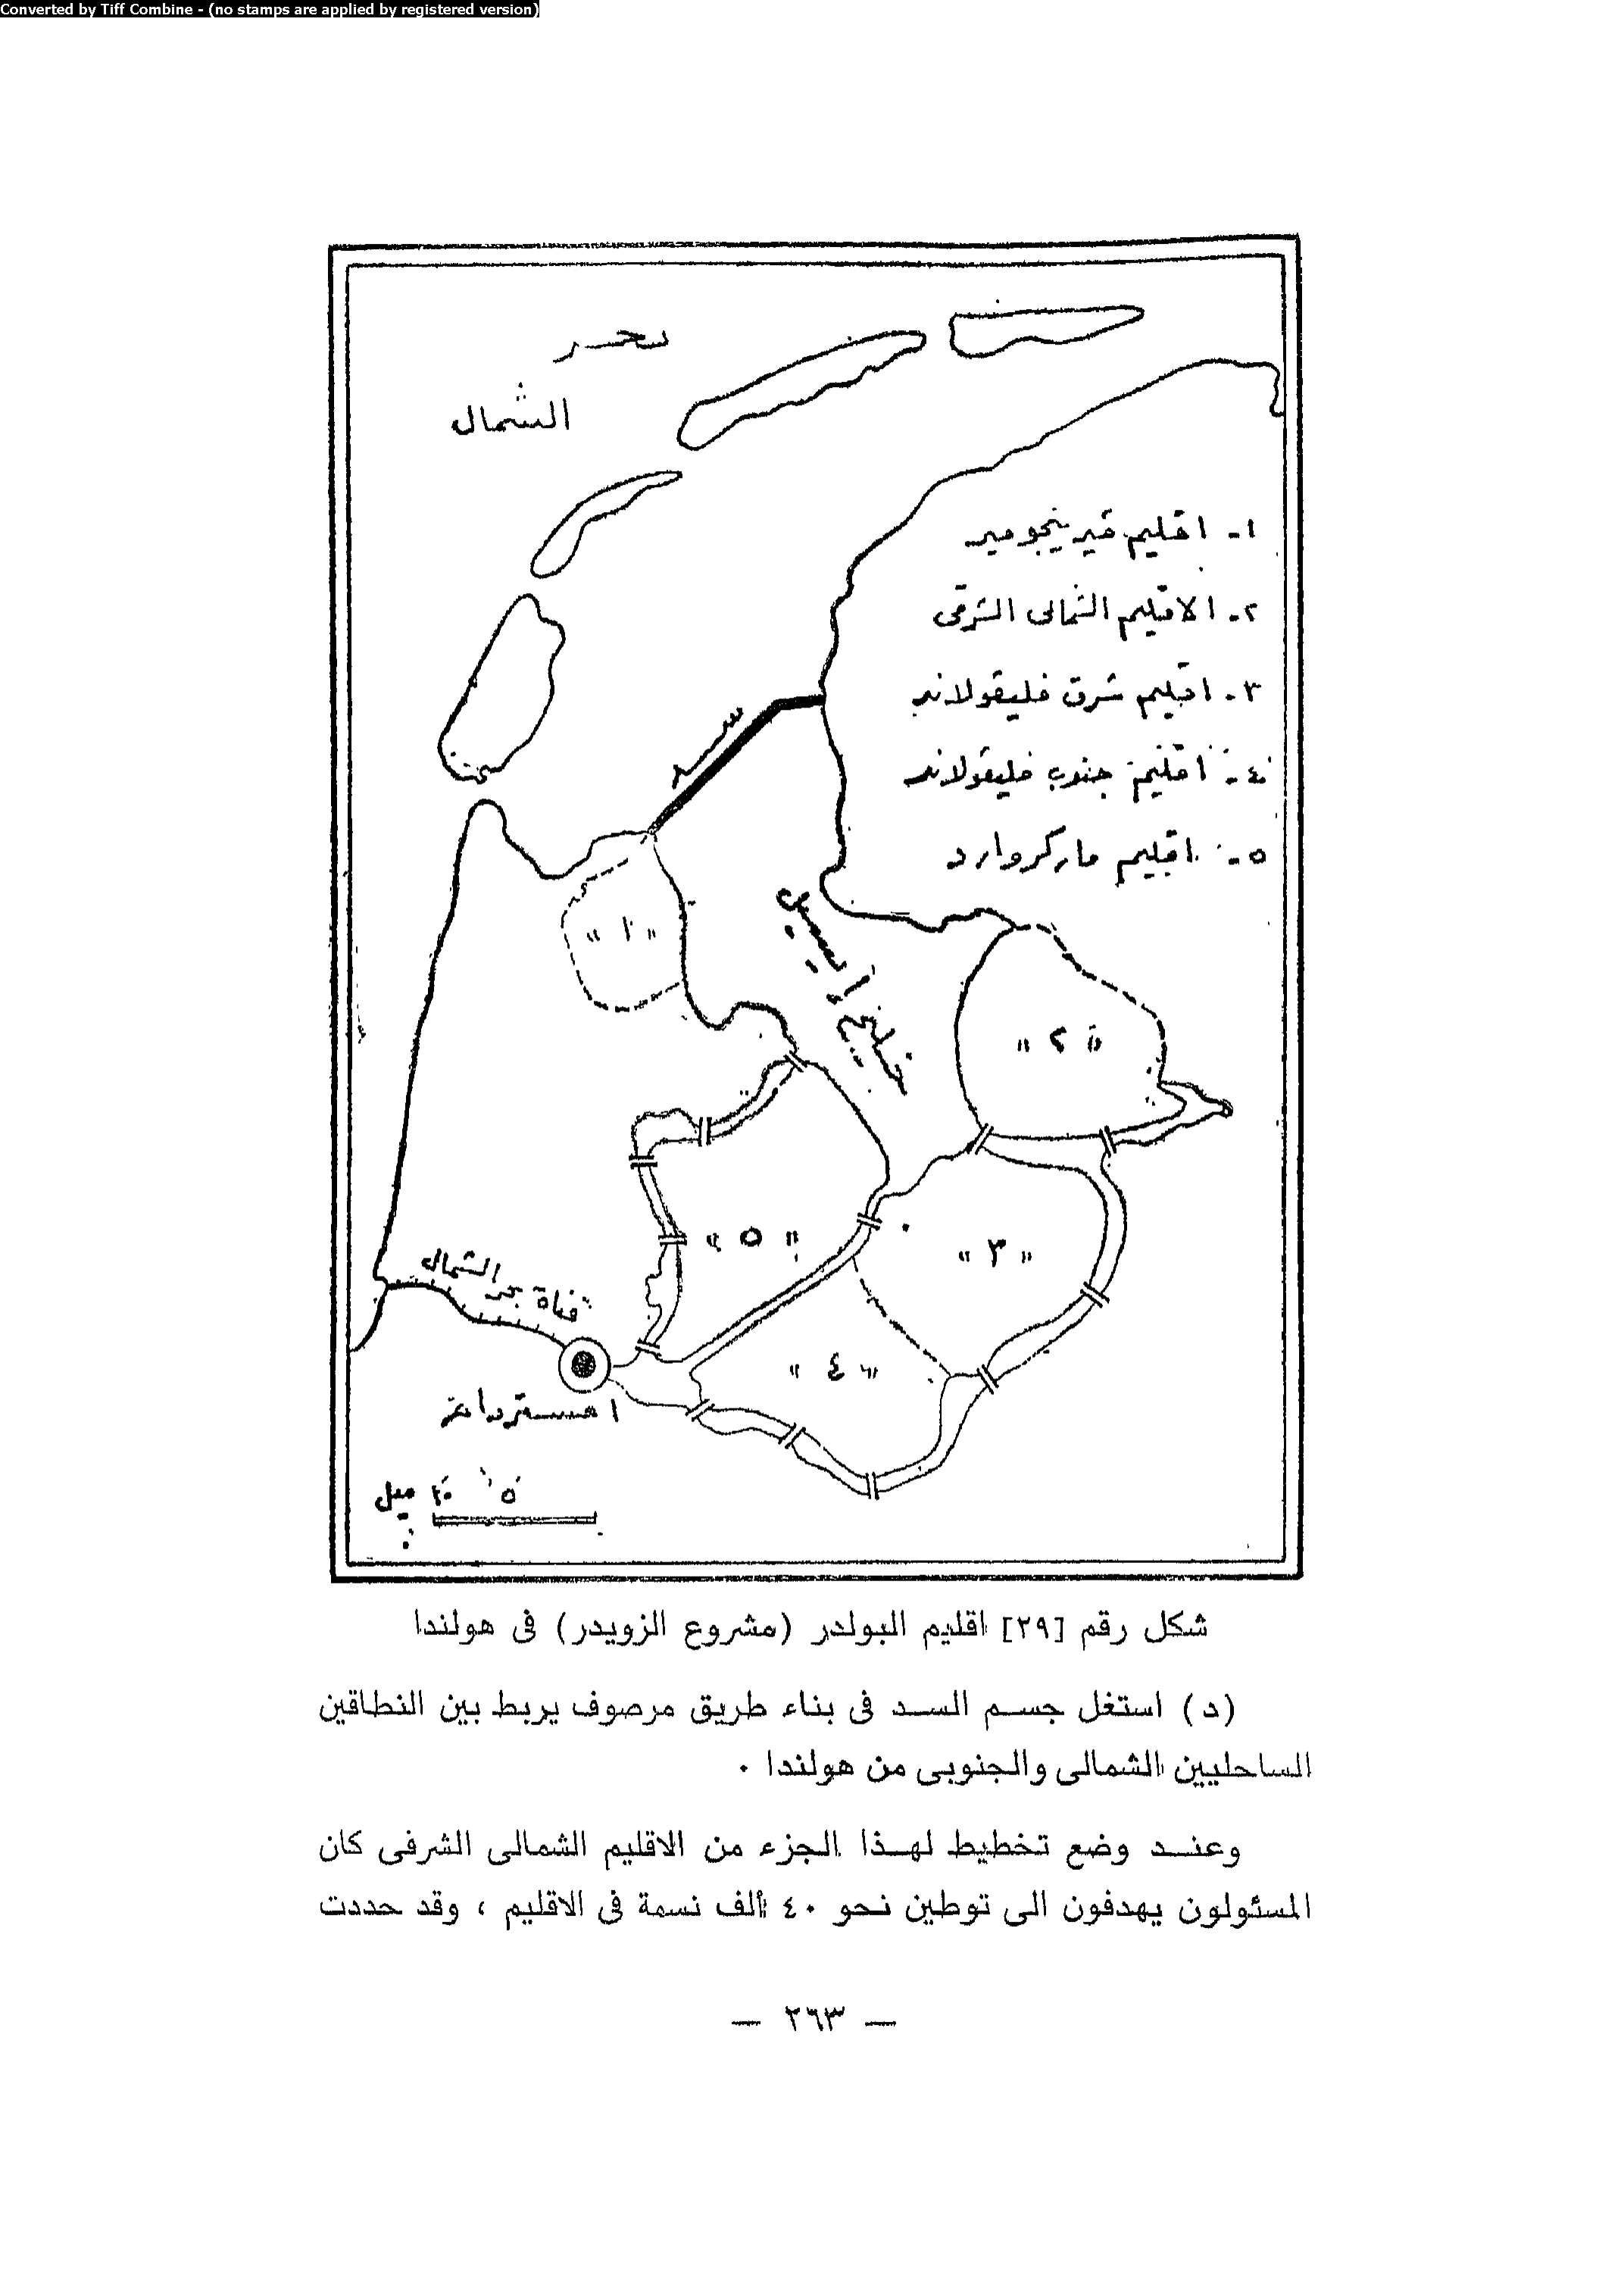 Converted by Tiff Combine - (no stamps are applied by registered version)
بحر
الشمال
١- اقليم فيرينجومير
٢- الاقليم الشمالى الشرقى
٣- اقليم شرق فليفولاند
٤- اقليم جنوب فليفولاند
٥- اقليم ماركروارد
سد
خليج ايسيل
"١"
"٢"
"٥"
"٣"
"٤"
قناة بحر الشمال
امستردام
ميل
شكل رقم [٢٩] اقليم البولدر (مشروع الزويدر) فى هولندا
(د) استغل جسم السد فى بناء طريق مرصوف يربط بين النطاقين
الساحليين الشمالى والجنوبى من هولندا ٠
وعند وضع تخطيط لهذا الجزء من الاقليم الشمالى الشرفى كان
المسئولون يهدفون الى توطين نحو ٤٠ ألف نسمة فى الاقليم ، وقد حددت
— ٢٦٣ —